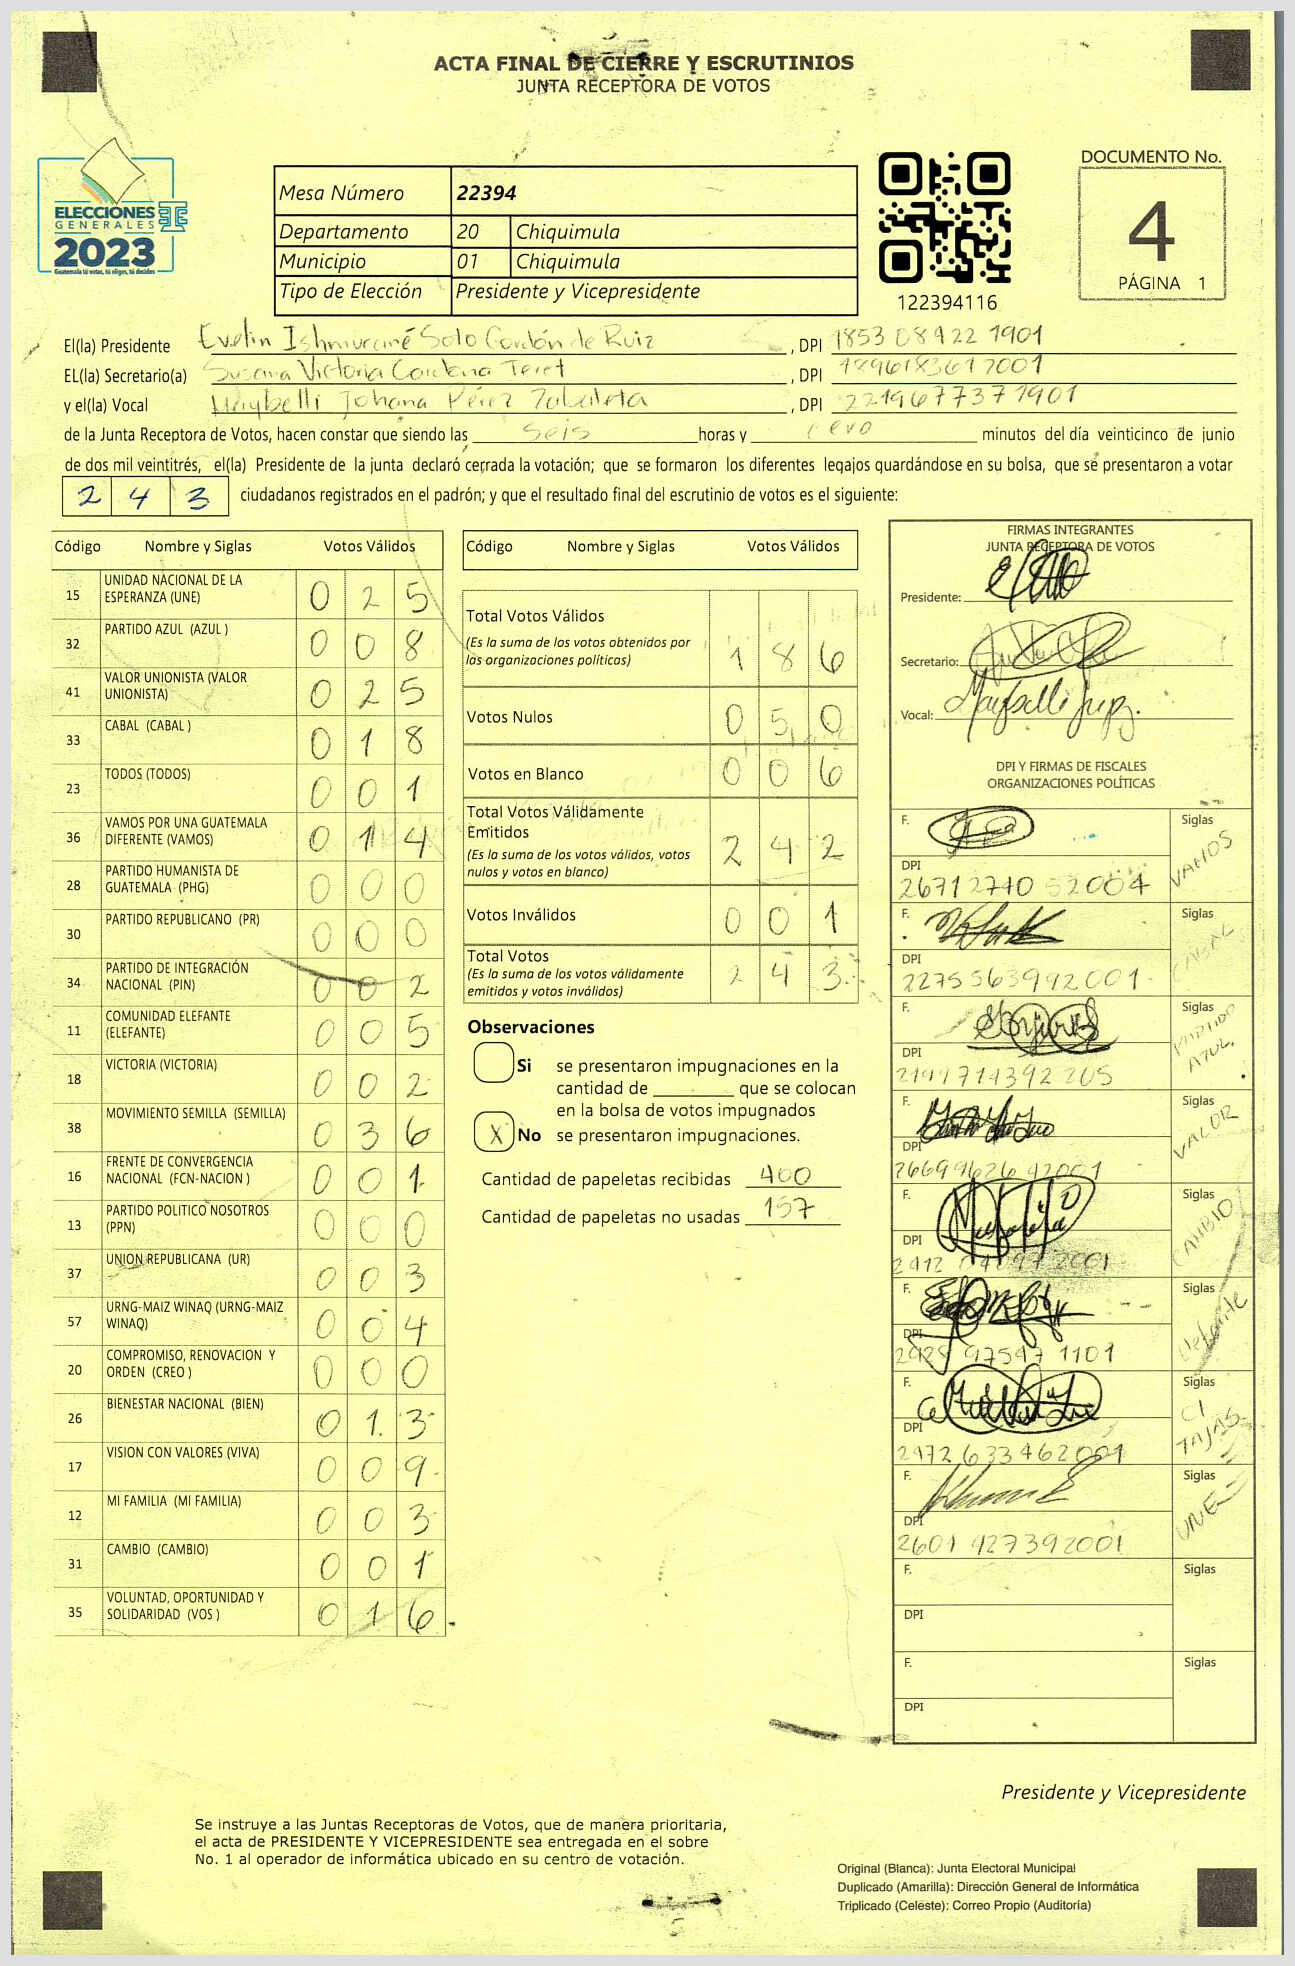 ACTA FINAL DE CIERRE Y ESCRUTINIOS
JUNTA RECEPTORA DE VOTOS
ELECCIONES
GENERALES
2023
Guatemala tú votas, tú eliges, tú decides
Mesa Número 22394
Departamento 20 Chiquimula
Municipio 01 Chiquimula
Tipo de Elección Presidente y Vicepresidente
122394116
DOCUMENTO No.
4
PÁGINA 1
El(la) Presidente Evelin Soto Cordón de Ruiz , DPI 1853 08922 1901
EL(la) Secretario(a) Susana Victoria Cardona , DPI
y el(la) Vocal Johana Pérez , DPI 2219677371901
de la Junta Receptora de Votos, hacen constar que siendo las seis horas y cero minutos del día veinticinco de junio
de dos mil veintitrés, el(la) Presidente de la junta declaró cerrada la votación; que se formaron los diferentes legajos quardándose en su bolsa, que se presentaron a votar
2 4 3 ciudadanos registrados en el padrón; y que el resultado final del escrutinio de votos es el siguiente:
Código Nombre y Siglas Votos Válidos
15 UNIDAD NACIONAL DE LA ESPERANZA (UNE) 0 2 5
32 PARTIDO AZUL (AZUL ) 0 0 8
41 VALOR UNIONISTA (VALOR UNIONISTA) 0 2 5
33 CABAL (CABAL ) 0 1 8
23 TODOS (TODOS) 0 0 1
36 VAMOS POR UNA GUATEMALA DIFERENTE (VAMOS) 0 1 4
28 PARTIDO HUMANISTA DE GUATEMALA (PHG) 0 0 0
30 PARTIDO REPUBLICANO (PR) 0 0 0
34 PARTIDO DE INTEGRACIÓN NACIONAL (PIN) 0 0 2
11 COMUNIDAD ELEFANTE (ELEFANTE) 0 0 5
18 VICTORIA (VICTORIA) 0 0 2
38 MOVIMIENTO SEMILLA (SEMILLA) 0 3 6
16 FRENTE DE CONVERGENCIA NACIONAL (FCN-NACION ) 0 0 1
13 PARTIDO POLITICO NOSOTROS (PPN) 0 0 0
37 UNION REPUBLICANA (UR) 0 0 3
57 URNG-MAIZ WINAQ (URNG-MAIZ WINAQ) 0 0 4
20 COMPROMISO, RENOVACION Y ORDEN (CREO ) 0 0 0
26 BIENESTAR NACIONAL (BIEN) 0 1 3
17 VISION CON VALORES (VIVA) 0 0 9
12 MI FAMILIA (MI FAMILIA) 0 0 3
31 CAMBIO (CAMBIO) 0 0 1
35 VOLUNTAD, OPORTUNIDAD Y SOLIDARIDAD (VOS ) 0 1 6
Código Nombre y Siglas Votos Válidos
Total Votos Válidos 1 8 6
(Es la suma de los votos obtenidos por
las organizaciones políticas)
Votos Nulos 0 5 0
Votos en Blanco 0 0 6
Total Votos Válidamente
Emitidos 2 4 2
(Es la suma de los votos válidos, votos
nulos y votos en blanco)
Votos Inválidos 0 0 1
Total Votos 2 4 3
(Es la suma de los votos válidamente
emitidos y votos inválidos)
Observaciones
Si se presentaron impugnaciones en la
cantidad de ________ que se colocan
en la bolsa de votos impugnados
X No se presentaron impugnaciones.
Cantidad de papeletas recibidas 400
Cantidad de papeletas no usadas 157
FIRMAS INTEGRANTES
JUNTA RECEPTORA DE VOTOS
Presidente:
Secretario:
Vocal:
DPI Y FIRMAS DE FISCALES
ORGANIZACIONES POLÍTICAS
F. Siglas VAMOS
DPI
F. Siglas CABAL
DPI 2275563992001
F. Siglas PARTIDO AZUL
DPI
F. Siglas VALOR
DPI
F. Siglas CAMBIO
DPI
F. Siglas Elefante
DPI
F. Siglas
DPI 2972633462001
F. Siglas UNE
DPI 2601 927392001
F. Siglas
DPI
F. Siglas
DPI
Presidente y Vicepresidente
Se instruye a las Juntas Receptoras de Votos, que de manera prioritaria,
el acta de PRESIDENTE Y VICEPRESIDENTE sea entregada en el sobre
No. 1 al operador de informática ubicado en su centro de votación.
Original (Blanca): Junta Electoral Municipal
Duplicado (Amarilla): Dirección General de Informática
Triplicado (Celeste): Correo Propio (Auditoría)